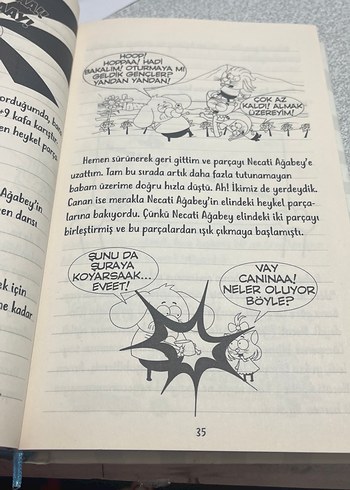 orduğumda,
+9 kafa
en heykel
Ağabey'in
en dansı
ek için
ne kadar
HOOP!
HOPPAA! HADİ
BAKALIM! OTURMAYA MI
GELDİK GENÇLER?
YANDAN YANDAN!
ÇOK AZ
KALDI! ALMAK
ÜZEREYİM!
Hemen sürünerek geri gittim ve parçayı Necati Ağabey'e
uzattım. Tam bu sırada artık daha fazla tutunamayan
babam üzerime doğru hızla düştü. Ah! İkimiz de yerdeydik.
Canan ise merakla Necati Ağabey'in elindeki heykel parça-
larına bakıyordu. Çünkü Necati Ağabey elindeki iki parçayı
birleştirmiş ve bu parçalardan ışık çıkmaya başlamıştı.
ŞUNU DA
ŞURAYA
KOYARSAAK...
EVEET!
VAY
CANINAA!
NELER OLUYOR
BÖYLE?
35